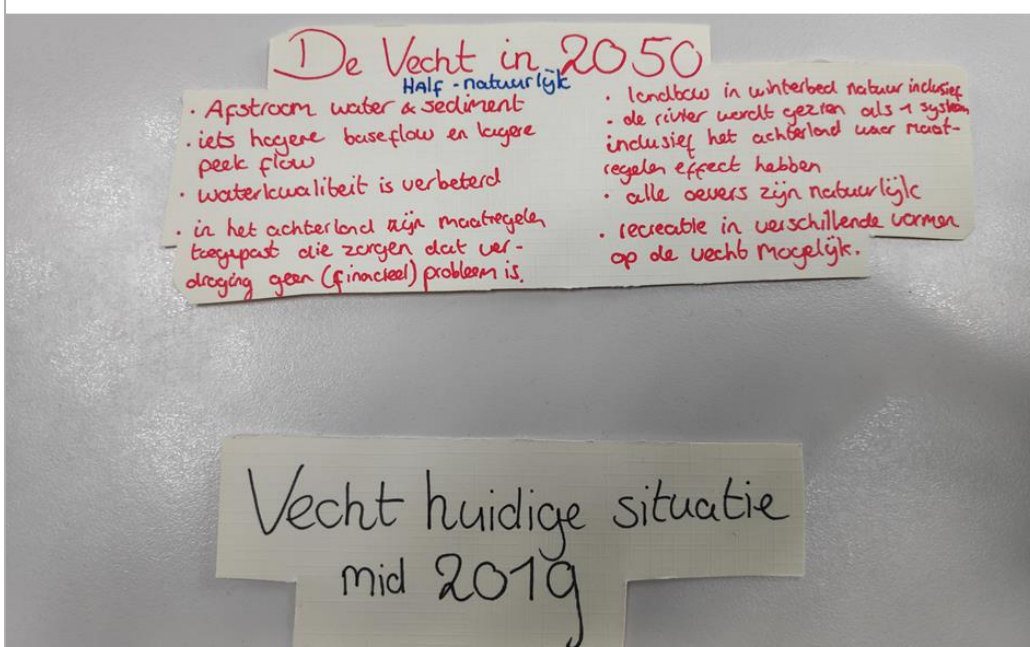 De Vecht in 2050
Half-natuurlijk
· Afstroom water & sediment
· iets hogere baseflow en lagere
peek flow
· waterkwaliteit is verbeterd
· in het achterland zijn maatregelen
toegepast die zorgen dat ver-
droging geen (financieel) probleem is.
· landbouw in winterbed natuur inclusief
· de rivier wordt gezien als 1 system
inclusief het achterland waar maat-
regelen effect hebben
· alle oevers zijn natuurlijk
· recreatie in verschillende vormen
op de vecht mogelijk.
Vecht huidige situatie
mid 2019